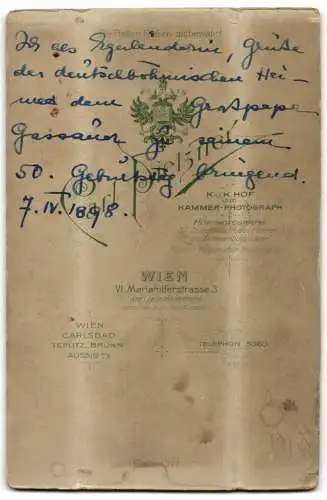 Platten bleiben aufbewahrt
Ida als Egerländerin, Grüße
der deutschböhmischen Hei-
mad dem Großpapa
Gassauer zu seinem
50. Geburtstag bringend.
7. IV. 1898.
Carl Pietzner
K.u.K HOF
UND
KAMMER-PHOTOGRAPH
WIEN
VI. Mariahilferstrasse 3
WIEN
CARLSBAD
TEPLITZ, BRÜNN
AUSSIG a/E
TELEPHON 5063